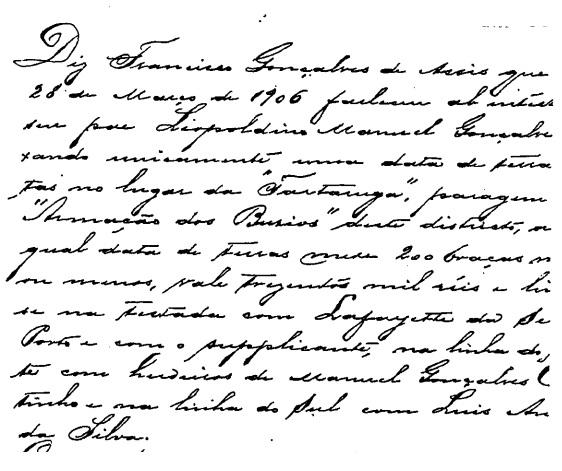 Diz Francisco Gonçalves de Assis que
28 de Março de 1906 falleceu ab intest
seu pae Leopoldino Manuel Gonçalve
xando unicamente uma data de terra
tas no lugar da "Tartaruga", paragem
"Armação dos Buzios" deste districto, a
qual data de terras mede 200 braças m
ou menos, vale trezentos mil réis e li
se na testada com Lafayette da Se
Porto e com o supplicante, na linha do
te com herdeiros de Manuel Gonçalves
tinho e na linha do Sul com Luis An
da Silva.